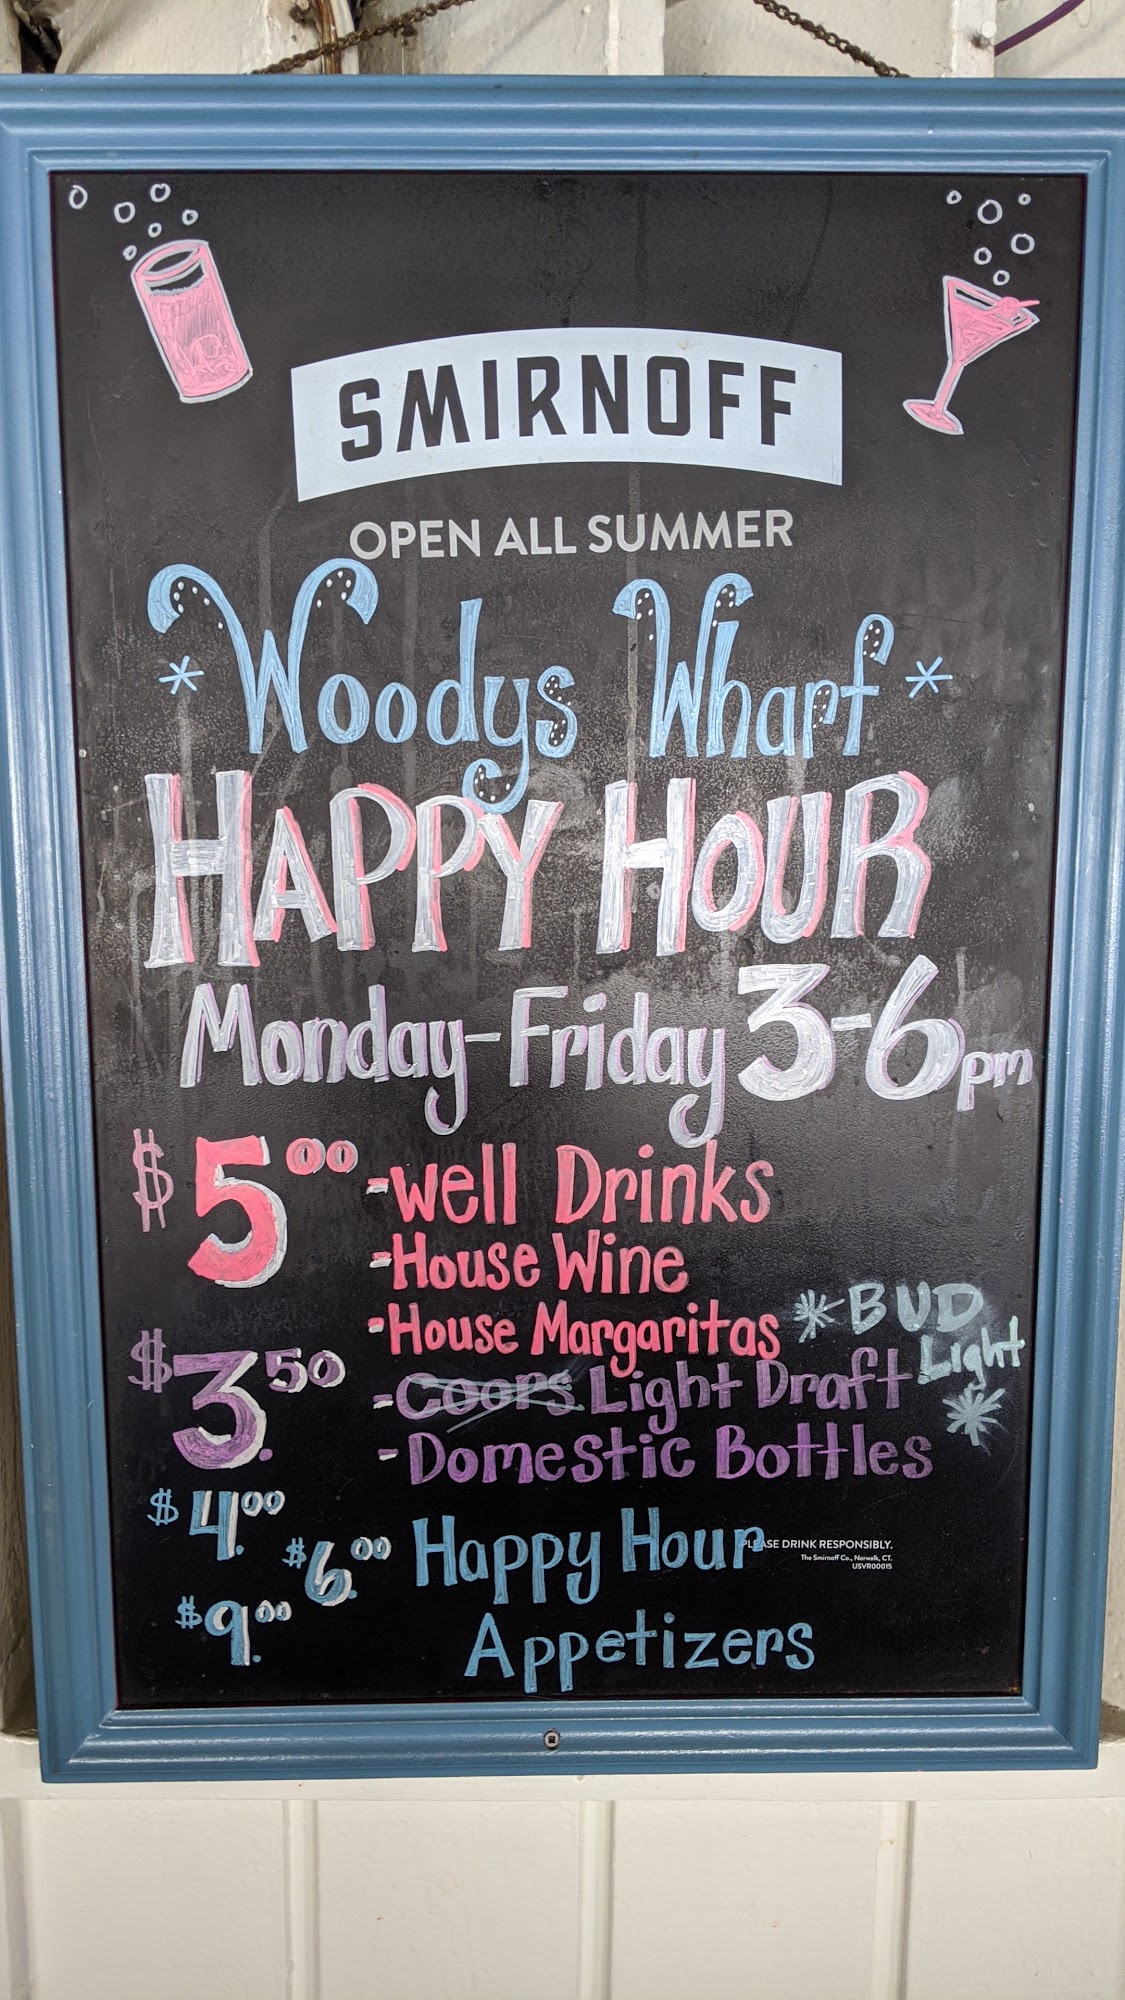 SMIRNOFF
OPEN ALL SUMMER
* Woodys Wharf *
HAPPY HOUR
Monday-Friday 3-6pm
$5.00 -Well Drinks
-House Wine
-House Margaritas
*BUD
Light
*
$3.50 -Coors Light Draft
-Domestic Bottles
$4.00
$6.00 Happy Hour
PLEASE DRINK RESPONSIBLY.
The Smirnoff Co., Norwalk, CT.
USVR00015
$9.00 Appetizers